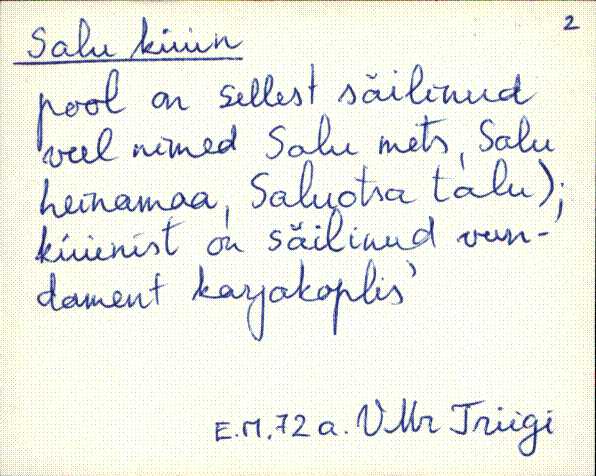 2
Salu küün
pool on sellest säilinud
veel nimed Salu mets, Salu
heinamaa, Saluotsa talu);
küünist on säilinud vun-
dament karjakoplis'
E.M. 72 a. VMr Triigi